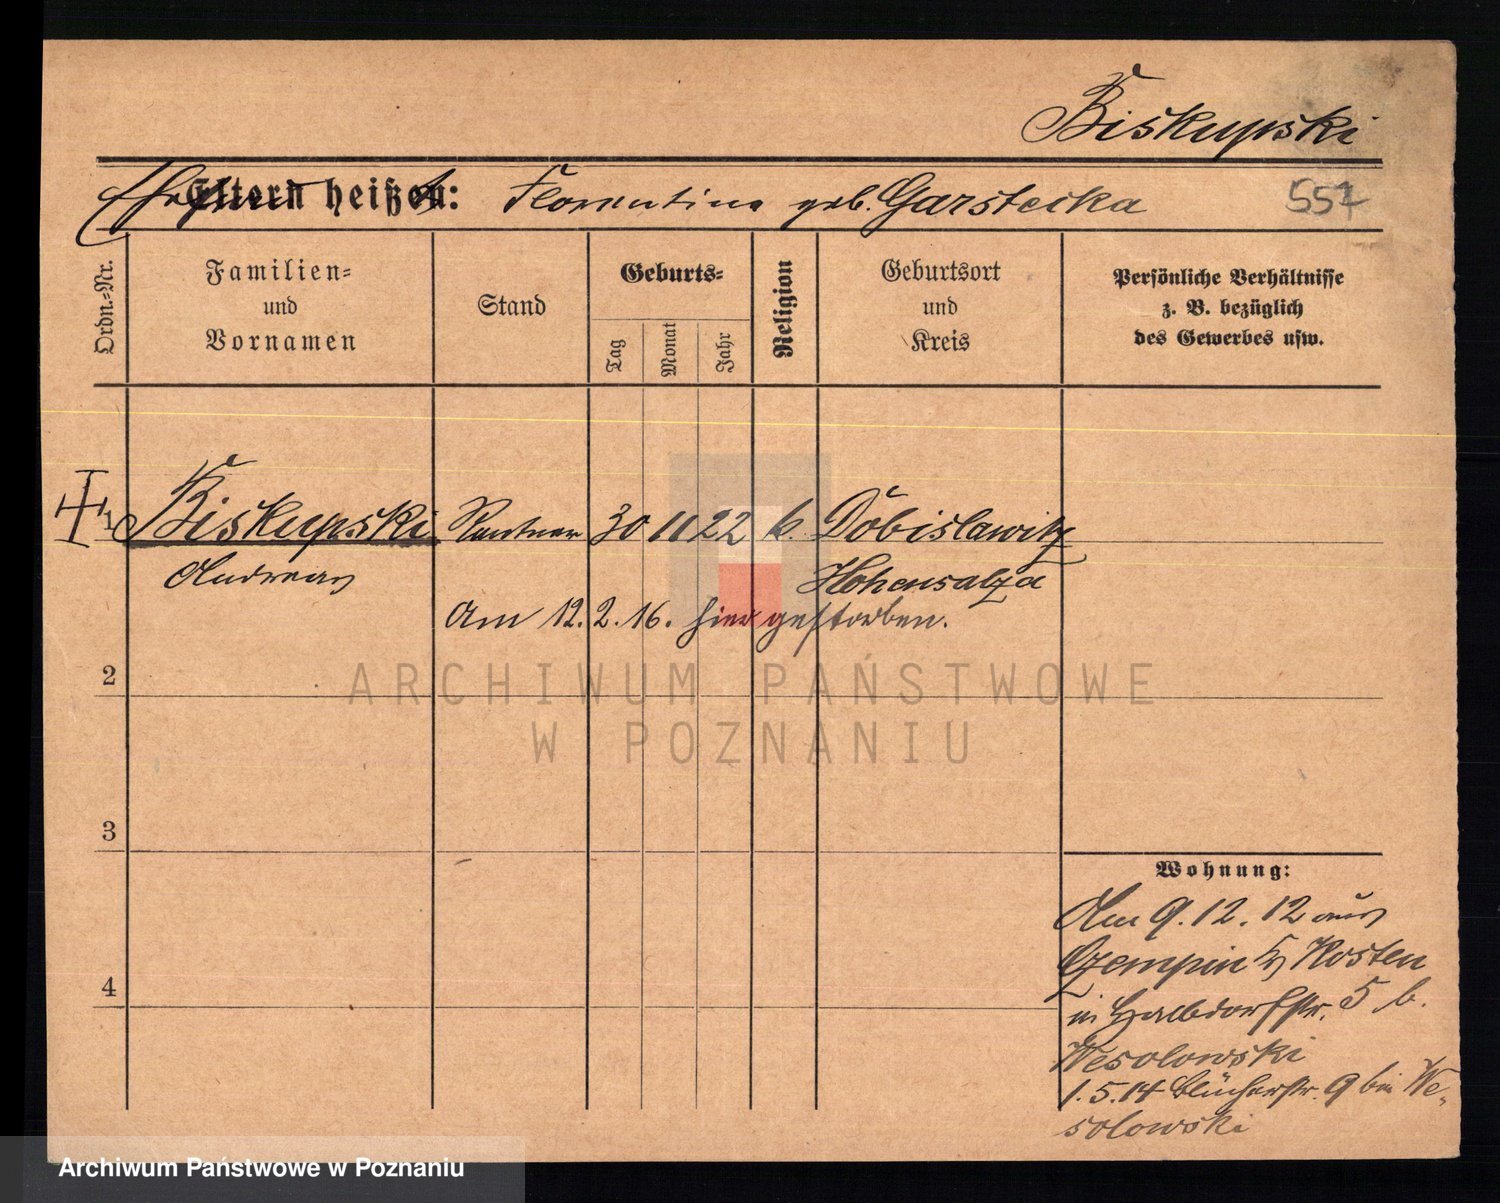 Biskupski
Eltern heißen: Florentine geb. Garstecka 557
Ordn.-Nr.
Familien-
und
Vornamen
Stand
Geburts-
Tag
Monat
Jahr
Religion
Geburtsort
und
Kreis
Persönliche Verhältnisse
z. B. bezüglich
des Gewerbes usw.
1 Biskupski Rentner 30 11 22 k. Dobislawitz
Andreas Hohensalza
Am 12.2.16. hier gestorben.
2
ARCHIWUM PAŃSTWOWE
W POZNANIU
3
Wohnung:
Am 9.12.12 aus
Czempin Kosten
4
in Halbdorfstr. 5 b.
Wesolowski
1.5.14 Blücherstr. 9 bei We-
solowski
Archiwum Państwowe w Poznaniu